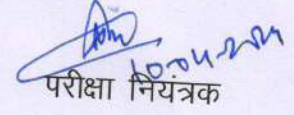 10-04-2024
परीक्षा नियंत्रक